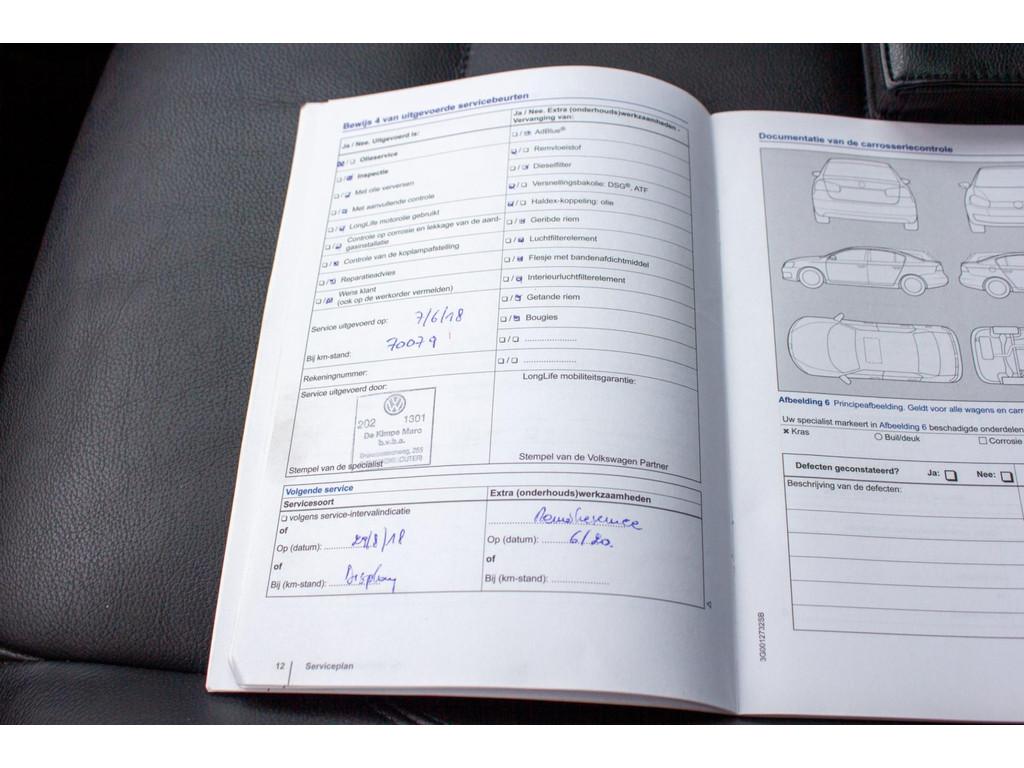 Bewijs 4 van uitgevoerde servicebeurten
Ja / Nee. Uitgevoerd is:
☒/❑ Olieservice
❑/☒ Inspectie
❑/☒ Met olie verversen
❑/☒ Met aanvullende controle
❑/☒ LongLife motorolie gebruikt
❑/☒ Controle op corrosie en lekkage van de aard-
gasinstallatie
❑/☒ Controle van de koplampafstelling
❑/☒ Reparatieadvies
❑/☒ Wens klant
(ook op de werkorder vermelden)
Service uitgevoerd op: 7/6/18
Bij km-stand: 70079
Rekeningnummer:
Service uitgevoerd door:
202 1301
De Kimpe Marc
b.v.b.a.
Stempel van de specialist
Ja / Nee. Extra (onderhouds)werkzaamheden -
Vervanging van:
❑/☒ AdBlue®
☒/❑ Remvloeistof
❑/☒ Dieselfilter
☒/❑ Versnellingsbakolie: DSG®, ATF
☒/❑ Haldex-koppeling: olie
❑/☒ Geribde riem
❑/☒ Luchtfilterelement
❑/☒ Flesje met bandenafdichtmiddel
❑/☒ Interieurluchtfilterelement
❑/☒ Getande riem
❑/☒ Bougies
❑/❑ ......................
❑/❑ ......................
LongLife mobiliteitsgarantie:
Stempel van de Volkswagen Partner
Volgende service
Servicesoort
❑ volgens service-intervalindicatie
of
Op (datum): 27/8/18
of
Bij (km-stand): Display
Extra (onderhouds)werkzaamheden
Op (datum): 6/20
of
Bij (km-stand): ......................
12 Serviceplan
Documentatie van de carrosseriecontrole
Afbeelding 6 Principeafbeelding. Geldt voor alle wagens en carr
Uw specialist markeert in Afbeelding 6 beschadigde onderdelen
✖ Kras
○ Buil/deuk
☐ Corrosie
Defecten geconstateerd? Ja: ❑ Nee: ❑
Beschrijving van de defecten:
3G0012732SB